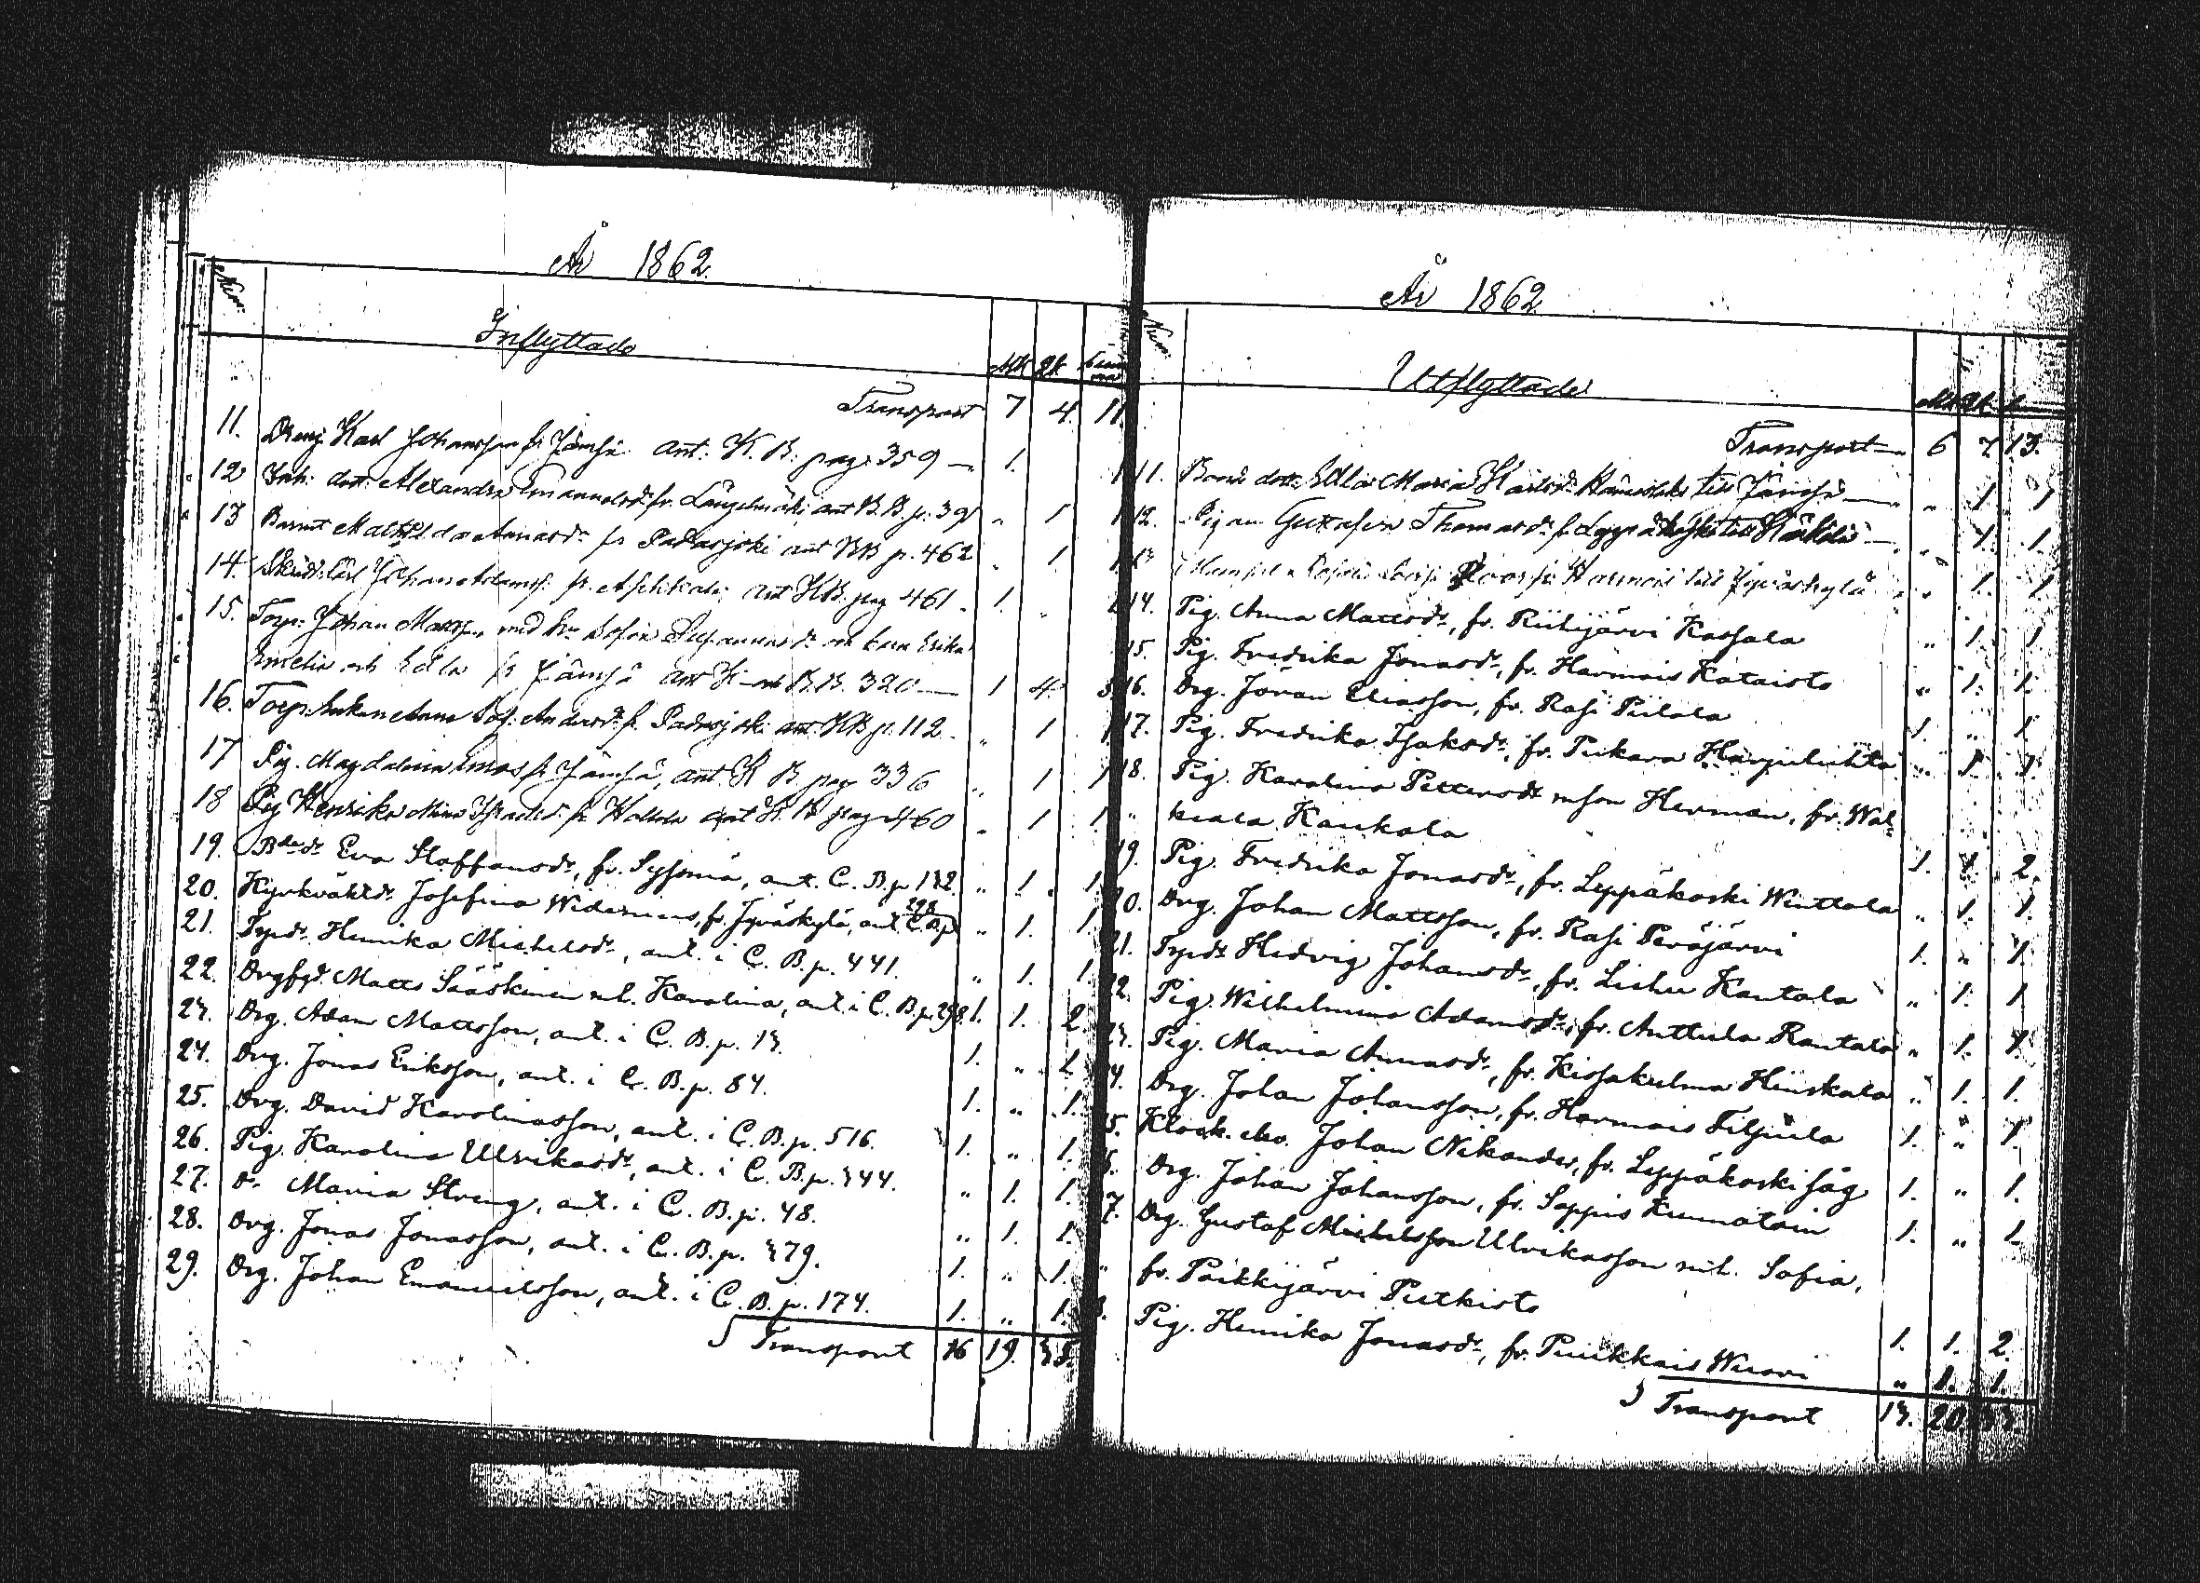 År 1862.
Num:
Inflyttade
Mk Qk Summa
Transport 7 4. 11.
11. Dreng Karl Johansson fr Jämsä ant. K. B. pag. 359 — 1. 1
12 Inh: dott: Alexandra Emanuelsdr fr. Längelmäki ant B.B. p. 39 " 1 1
13 Barnet Mathilda Annasdr fr Padasjoki ant KB p. 462 " 1 1
14. Johan Adamss. fr. ant KB. pag 461. 1. "
15. Torp: Johan Matts. med Hu Sofia och barn Erika
Emelia och Edla fr Jämsä ant K och B.B. 320 — 1 4. 5
16. Torp: Enkan Anna Sof. Andersdr fr. Padasjoki ant. KB p. 112. " 1 1
17 Pig. Magdalena fr Jämsä, ant. K B. pag 336 " 1 1
18 Pig Henrika Mina fr Hollola ant K. B pag 460 " 1 1.
19. Bdr Eva Staffansdr, fr. Sysmä, ant. C. B. p. 132. " 1. 1.
20. Kyrkväktdr Josefina Widernius, fr. Jyväskylä, ant. C. B. p. 298 " 1. 1.
21. Typdr Henrika Michelsdr, ant. i C. B. p. 441. " 1. 1.
22. Drgfgd Matts Sääskinen m h. Karolina, ant. i C. B. p. 298. 1. 1. 2
23. Drg. Adam Mattsson, ant. i C. B. p. 13. 1. " 1.
24. Drg. Jonas Eriksson, ant. i C. B. p. 84. 1. " 1.
25. Drg. David Karolinasson, ant. i C. B. p. 516. 1. " 1.
26. Pig. Karolina Ulrikasdr, ant. i C. B. p. 344. " 1. 1.
27. Do Maria Streng, ant. i C. B. p. 48. " 1. 1.
28. Drg. Jonas Jonasson, ant. i C. B. p. 379. 1. " 1.
29. Drg. Johan Emanuelsson, ant. i C. B. p. 174. 1. " 1.
Transport 16 19. 35.
År 1862
Num:
Utflyttade
Mk Qk S
Transport — 6 7 13.
11. Maria till Jämsä — " 1 1
12. Pigan Gustafva Thomasdr fr Leppäkoski till — " 1. 1.
13 Roos fr Harmois till Jyväskylä " 1. 1.
14. Pig. Anna Mattsdr, fr. Riihijärvi Kassala " 1. 1.
15. Pig. Fredrika Jonasdr, fr. Harmois Kataisto " 1. 1.
16. Drg. Johan Eliasson, fr. Rasi Piilola 1. " 1
17. Pig. Fredrika Isaksdr, fr. Pukara Harjuluhta " 1. 1.
18. Pig. Karolina Pettersdr m son Herman, fr. Wal-
" kiala Kaukala 1. 1. 2.
19. Pig. Fredrika Jonasdr, fr. Leppäkoski Winttala " 1. 1.
20. Drg. Johan Mattsson, fr. Rasi Peräjärvi 1. " 1.
21. Typdr Hedvig Johansdr, fr. Lishu Kantala " 1. 1
22. Pig. Wilhelmina Adamsdr, fr. Anttula Rantala " 1. 1.
23. Pig. Maria Annasdr, fr. Kissakulma Heiskala " 1. 1.
24. Drg. Johan Johansson, fr. Harmois Filppula 1. " 1
25. Klock. elev. Johan Nikander, fr. Leppäkoski såg 1. " 1.
26. Drg. Johan Johansson, fr. Seppis Kunnatoin 1. " 1.
27. Drg. Gustaf Michelsson Ulrikasson m h. Sofia,
" fr. Paikkijärvi Putkisto 1. 1. 2.
28. Pig. Henrika Jonasdr, fr. Puukkais Wuori " 1. 1.
Transport 13. 20 33